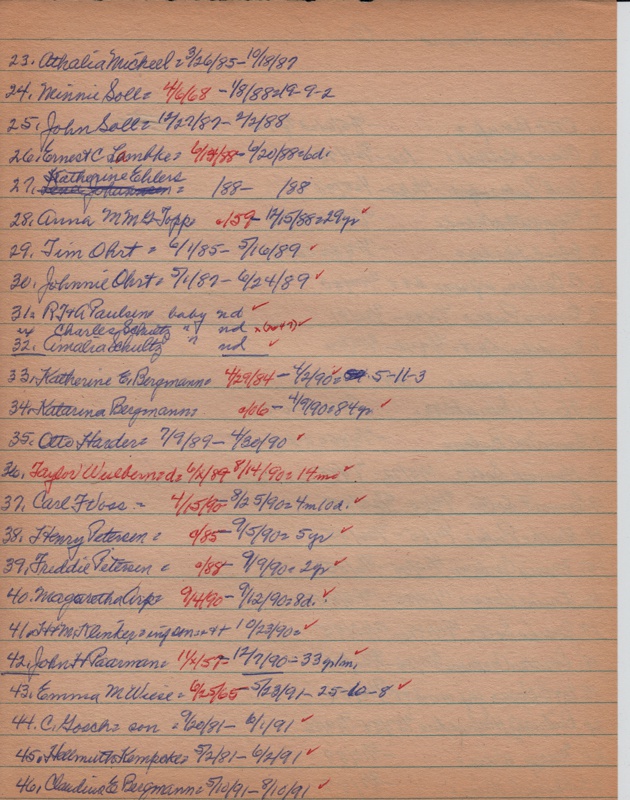 23. Athalia Mickeel = 3/26/85 - 10/18/87
24. Minnie Soll = 4/6/68 - 1/8/88 = 19-9-2
25. John Soll = 12/27/87 - 2/2/88
26. Ernest C Lambke = 6/14/88 - 6/20/88 = 6d.
Katherine Ehlers
27. = /88 - /88
28. Anna M M G Topp = 0/59 - 12/15/88 = 29yr ✓
29. Tim Ohrt = 6/1/85 - 5/16/89 ✓
30. Johnnie Ohrt = 5/1/87 - 6/24/89 ✓
31. R J + A Paulsen = baby nd ✓
Charles Schultz " nd ✓
32. Amalia Schultz " nd ✓
33. Katherine E. Bergmann = 4/29/84 - 4/2/90 = 5-11-3
34. Katarina Bergmann = 0/06 - 4/9/90 = 84yr ✓
35. Otto Harder = 7/9/89 - 4/30/90 ✓
36. Taylor Weilbernd = 6/2/89 8/14/90 = 14mo ✓
37. Carl F Voss = 4/15/90 - 8/25/90 = 4m10d. ✓
38. Henry Petersen = 0/85 - 9/5/90 = 5yr ✓
39. Freddie Petersen = 0/88 - 9/9/90 = 2yr ✓
40. Magaretha Arp = 9/4/90 - 9/12/90 = 8d. ✓
41. H + M Klinker = 10/23/90 = ✓
42. John H Paarman = 11/2/57 - 12/7/90 - 33yr1m. ✓
43. Emma M Wiese = 6/25/65 - 5/23/91 - 25-10-8 ✓
44. C. Gosch = son = 9/20/81 - 6/1/91 ✓
45. Hellmuth Kempcke = 5/2/81 - 6/2/91 ✓
46. Claudius E Bergmann = 5/10/91 - 8/10/91 ✓